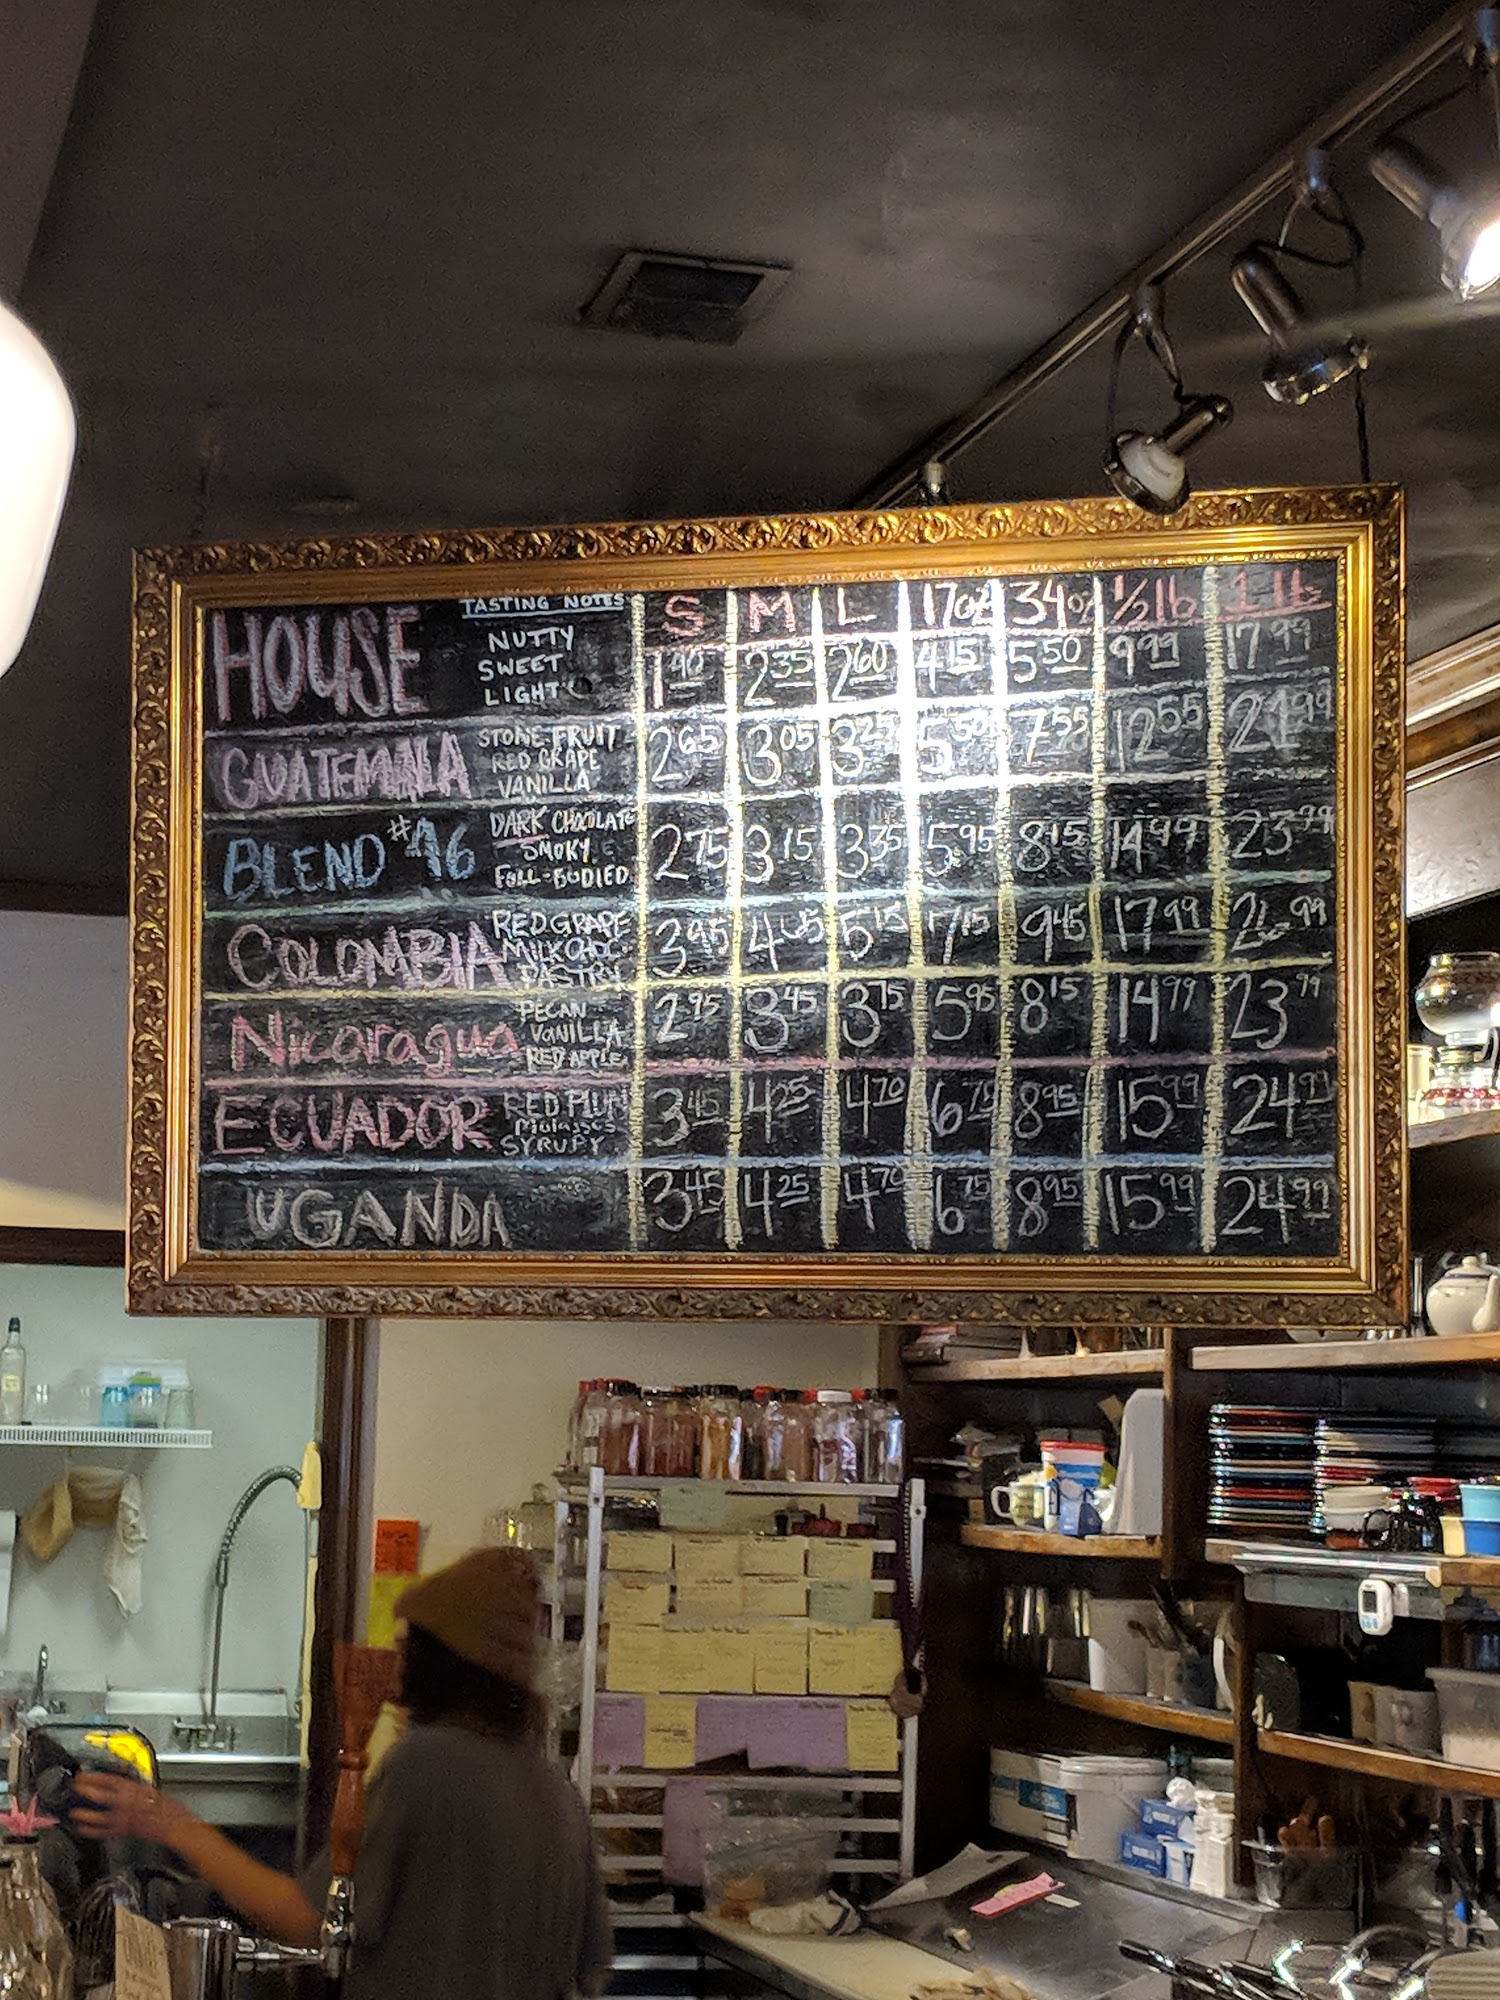 TASTING NOTES S M L 17oz 34oz 1/2 lb 1 lb
HOUSE
NUTTY
SWEET
LIGHT
1.90 2.35 2.60 4.15 5.50 9.99 17.99
GUATEMALA
STONE FRUIT
RED GRAPE
VANILLA
2.65 3.05 3.25 5.50 7.55 12.55 21.99
BLEND #46
DARK CHOCOLATE
SMOKY
FULL-BODIED
2.75 3.15 3.35 5.95 8.15 14.99 23.99
COLOMBIA
RED GRAPE
MILK CHOC
PASTRY
3.95 5.15 7.15 9.45 17.99
Nicaragua
PECAN
VANILLA
RED APPLE
2.95 3.45 3.75 5.95 8.15 14.99 23.99
ECUADOR
RED PLUM
Molasses
SYRUPY
3.45 4.25 4.70 6.75 8.95 15.99 24.99
UGANDA
3.45 4.25 4.70 6.75 8.95 15.99 24.99